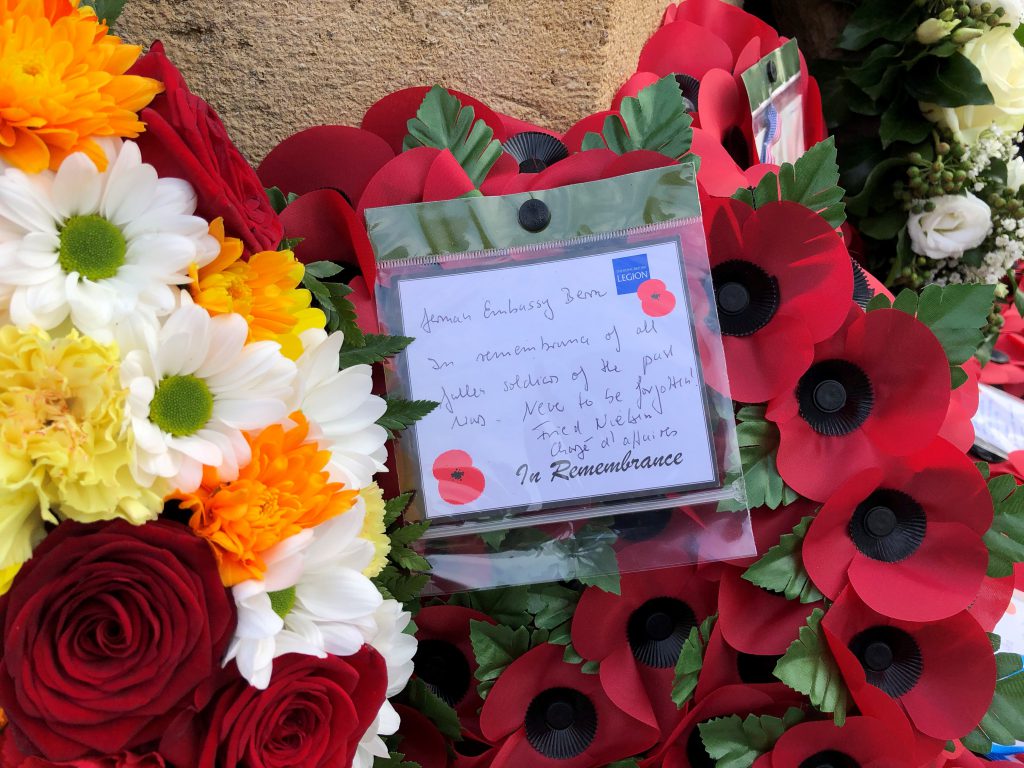 THE ROYAL BRITISH
LEGION
German Embassy Bern
In remembrance of all
fallen soldiers of the past
wars. Never to be forgotten!
Fried Nielsen
Chargé d'affaires
In Remembrance